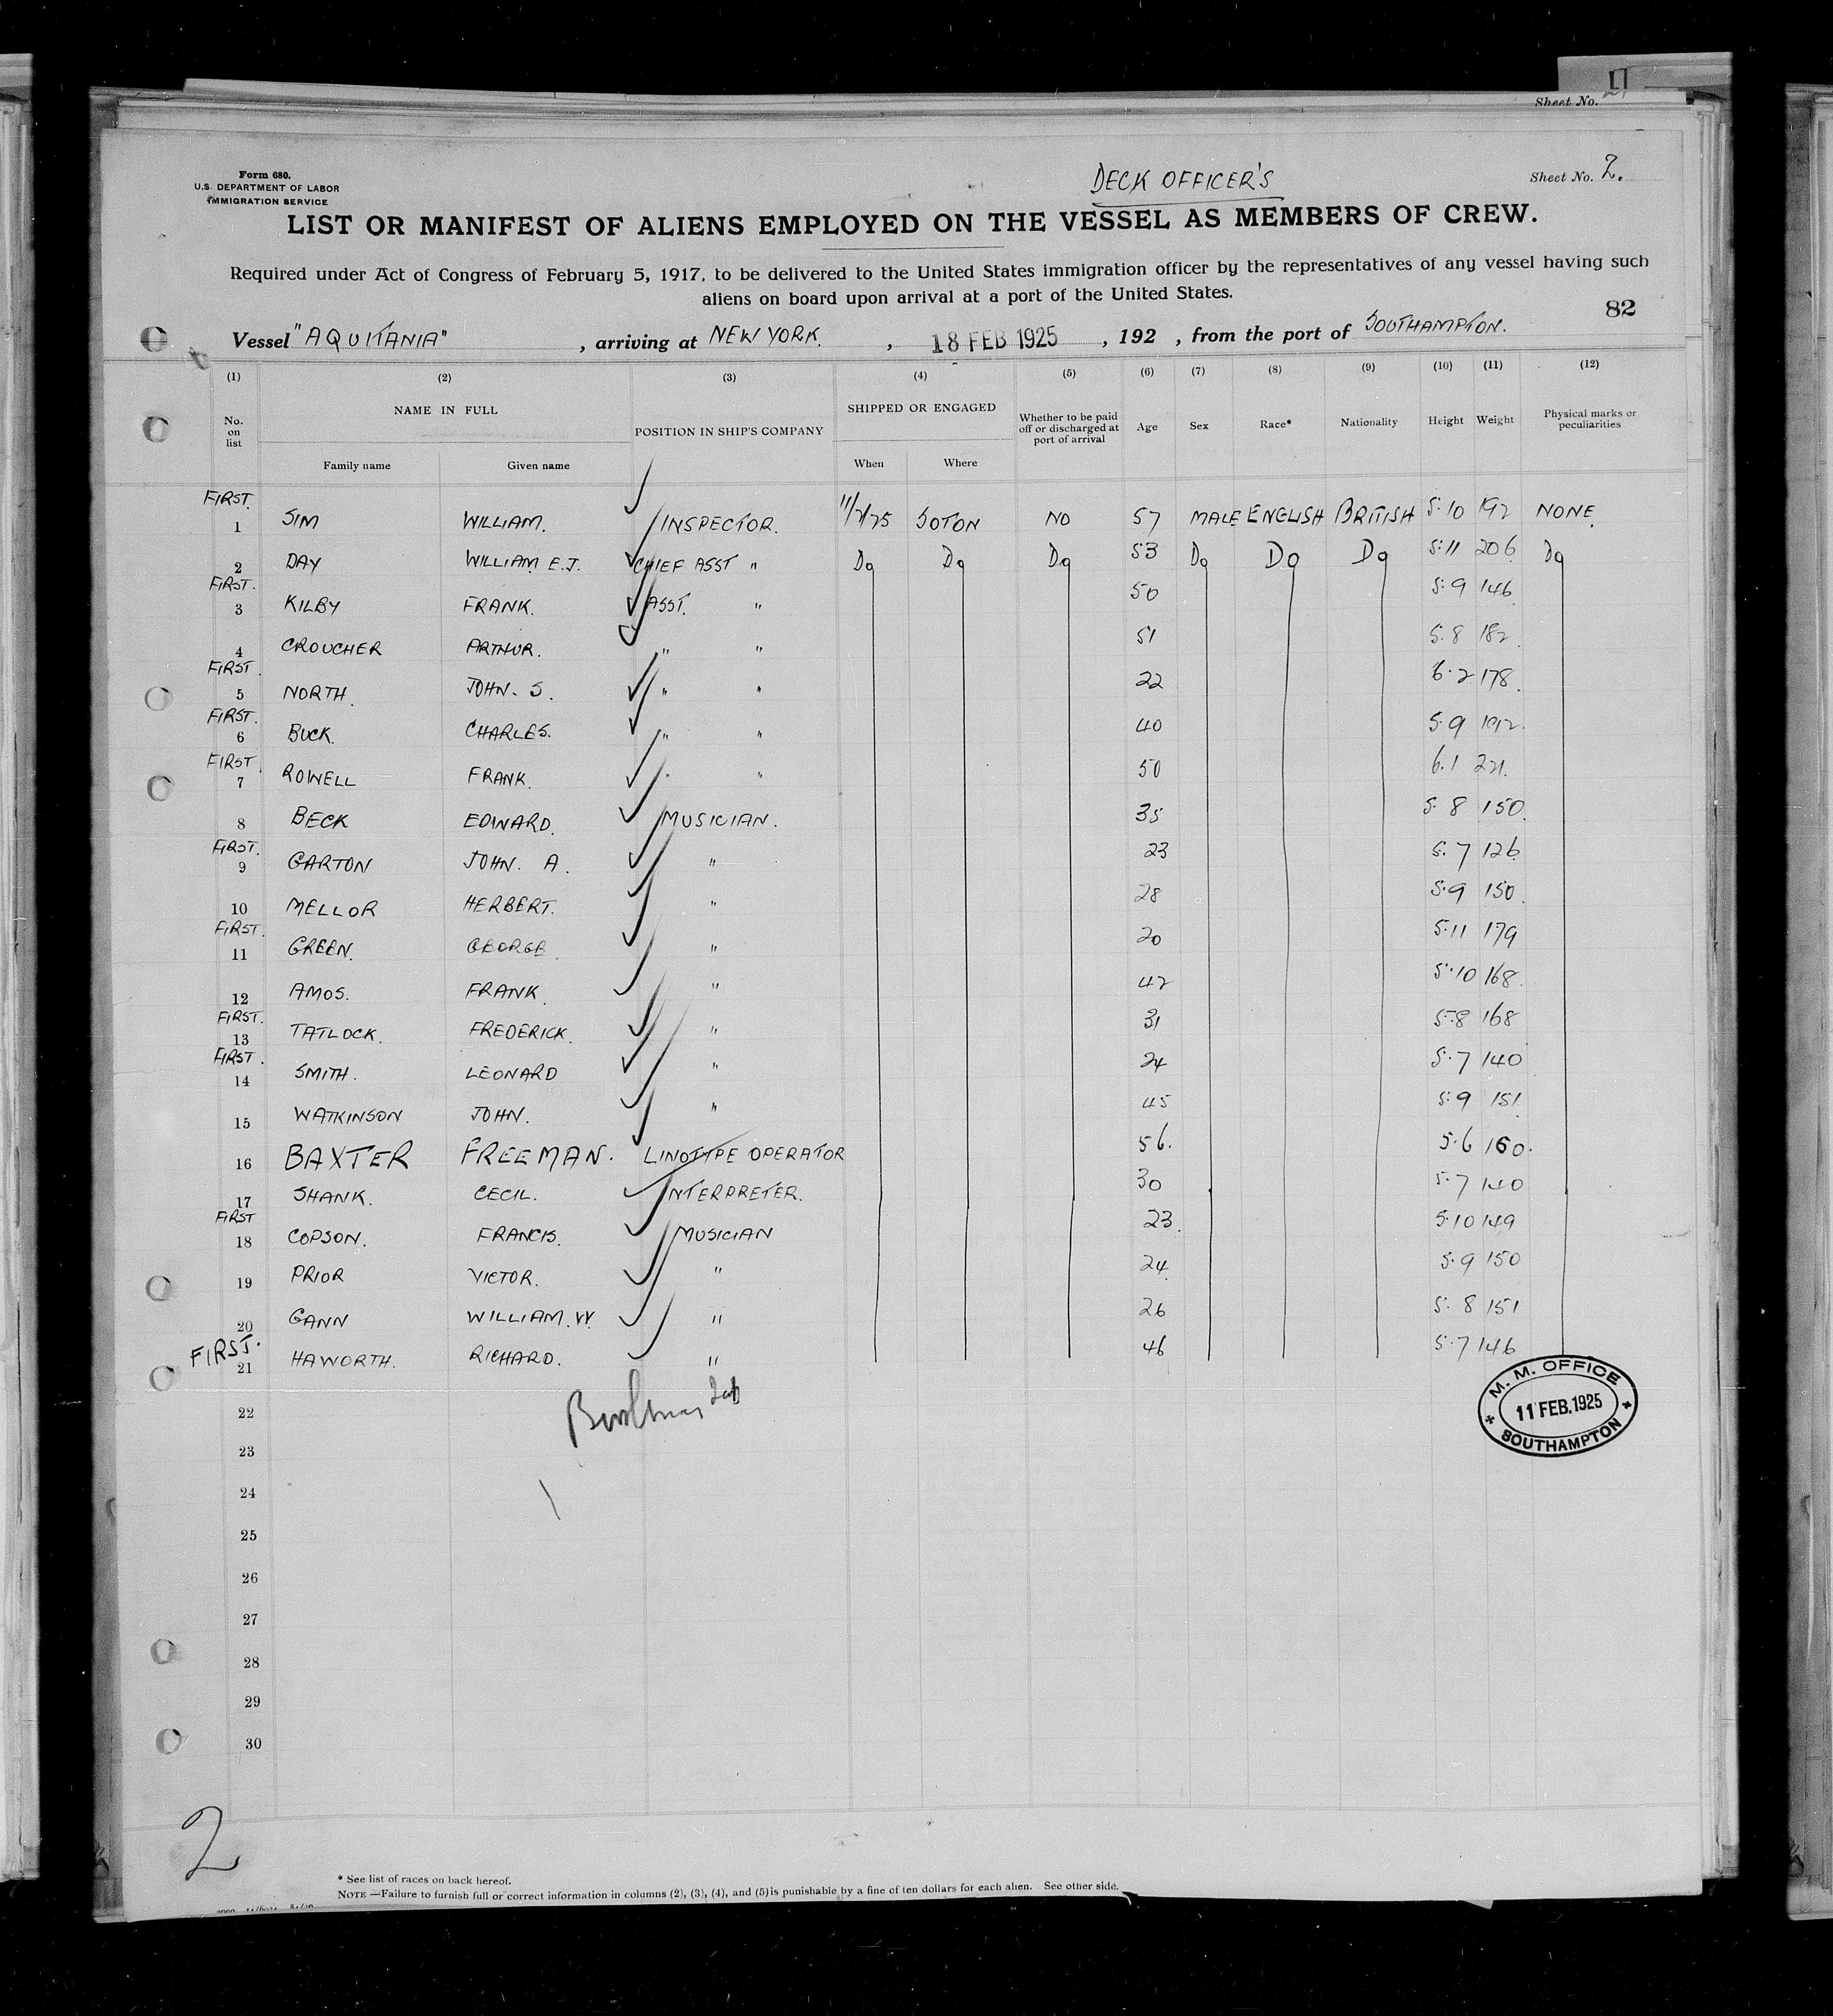 Sheet No.
Form 680.
U.S. DEPARTMENT OF LABOR
IMMIGRATION SERVICE
DECK OFFICER'S
Sheet No. 2.
LIST OR MANIFEST OF ALIENS EMPLOYED ON THE VESSEL AS MEMBERS OF CREW.
Required under Act of Congress of February 5, 1917, to be delivered to the United States immigration officer by the representatives of any vessel having such
aliens on board upon arrival at a port of the United States.
82
Vessel "AQUITANIA", arriving at NEW YORK., 18 FEB 1925, 192 , from the port of SOUTHAMPTON.
(1) (2) (3) (4) (5) (6) (7) (8) (9) (10) (11) (12)
No. on list NAME IN FULL POSITION IN SHIP'S COMPANY SHIPPED OR ENGAGED Whether to be paid off or discharged at port of arrival Age Sex Race* Nationality Height Weight Physical marks or peculiarities
Family name Given name When Where
FIRST.
1 SIM WILLIAM. INSPECTOR. 11/2/25 SOTON NO 57 MALE ENGLISH BRITISH 5:10 192 NONE.
2 DAY WILLIAM E.J. CHIEF ASST " Do Do Do 53 Do Do Do 5:11 206 Do
FIRST.
3 KILBY FRANK. ASST. " 50 5:9 146
4 CROUCHER ARTHUR. " " 51 5:8 182
FIRST.
5 NORTH. JOHN. S. " " 22 6.2 178.
FIRST.
6 BUCK. CHARLES. " " 40 5.9 192.
FIRST.
7 ROWELL FRANK. " " 50 6.1 221.
8 BECK EDWARD. MUSICIAN. 35 5.8 150.
FIRST.
9 GARTON JOHN. A. " 23 5.7 126
10 MELLOR HERBERT. " 28 5.9 150.
FIRST.
11 GREEN. GEORGE. " 20 5.11 179
12 AMOS. FRANK. " 42 5.10 168.
FIRST.
13 TATLOCK. FREDERICK. " 31 5.8 168
FIRST.
14 SMITH. LEONARD " 24 5.7 140
15 WATKINSON JOHN. " 45 5:9 151
16 BAXTER FREEMAN. LINOTYPE OPERATOR 56. 5.6 160.
17 SHANK. CECIL. INTERPRETER. 30 5.7 140
FIRST
18 COPSON. FRANCIS. MUSICIAN 23. 5.10 149
19 PRIOR VICTOR. " 24. 5.9 150
20 GANN WILLIAM. W. " 26 5.8 151
FIRST.
21 HAWORTH. RICHARD. " 46 5.7 146
22
23
24
25
26
27
28
29
30
M. M. OFFICE
11 FEB. 1925
SOUTHAMPTON
2
* See list of races on back hereof.
NOTE —Failure to furnish full or correct information in columns (2), (3), (4), and (5) is punishable by a fine of ten dollars for each alien. See other side.